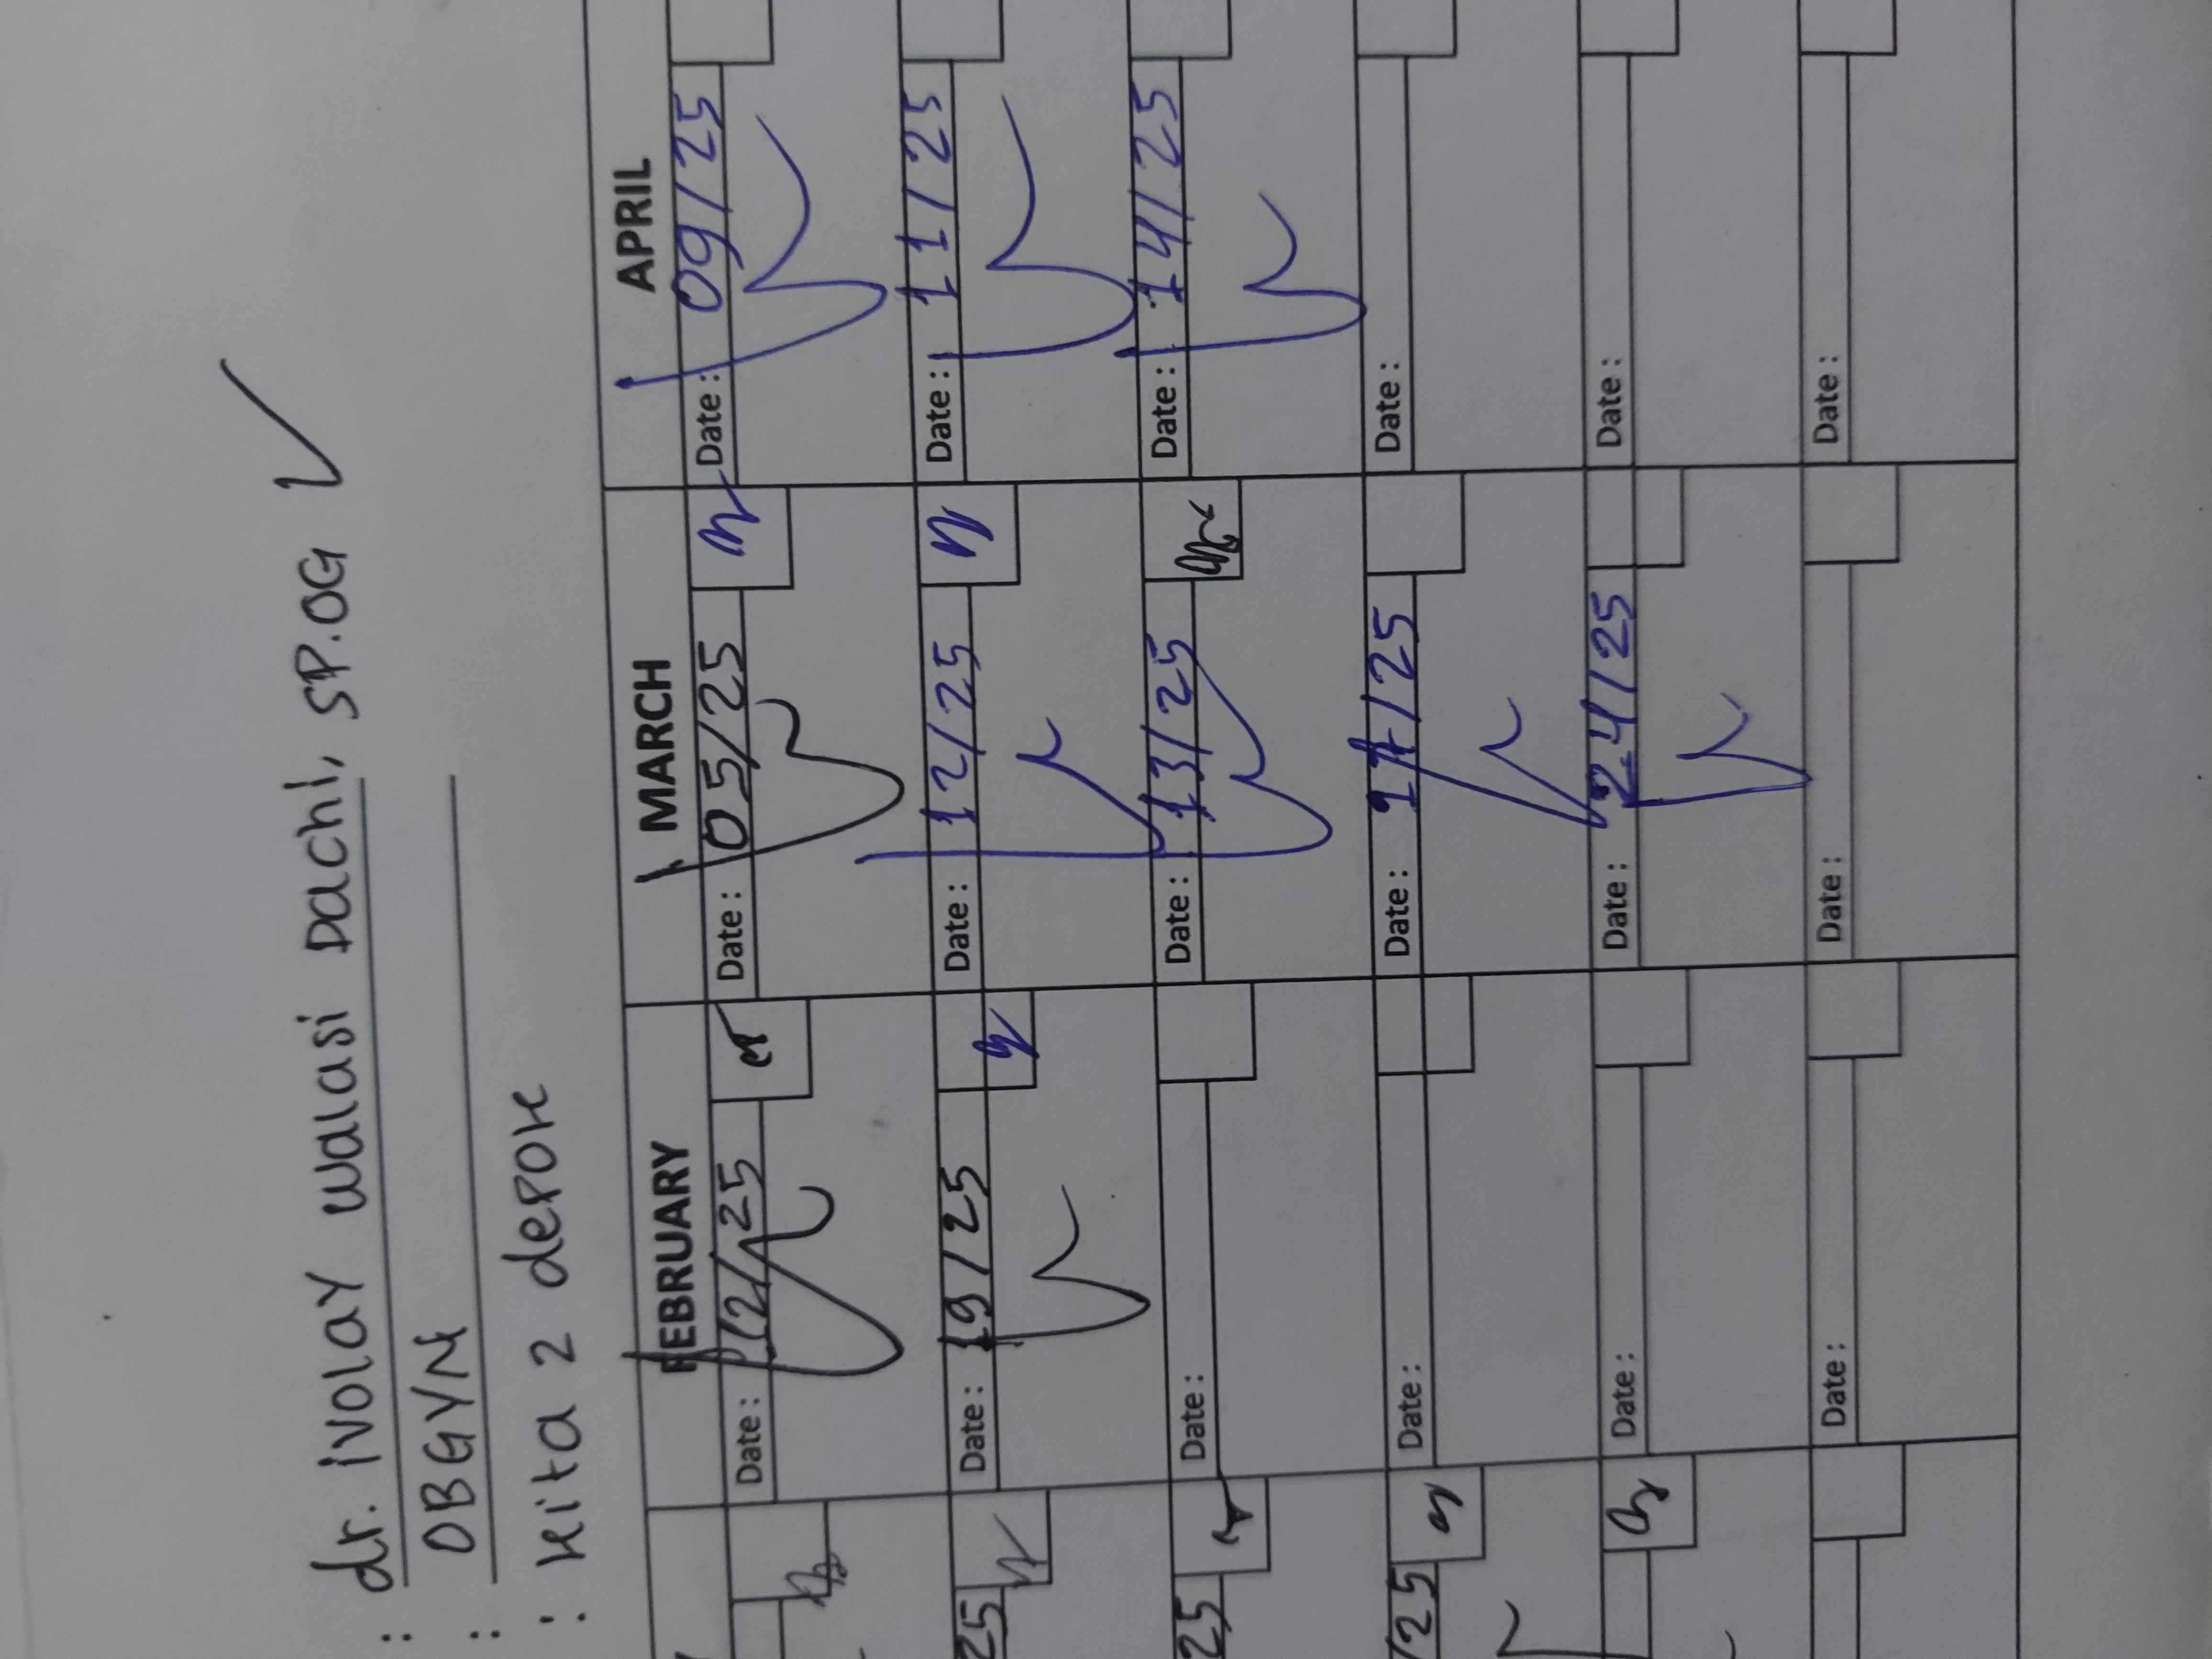 : dr. ivolay walasi Dachi, SP.OG
: OBGYN
: Kita 2 depok
FEBRUARY MARCH APRIL
Date: 12/25 Date: 05/25 Date: 09/25
25 Date: 19/25 Date: 12/25 Date: 11/25
25 Date: Date: 13/25 Date: 14/25
/25 Date: Date: 17/25 Date:
Date: Date: 24/25 Date:
Date: Date: Date: